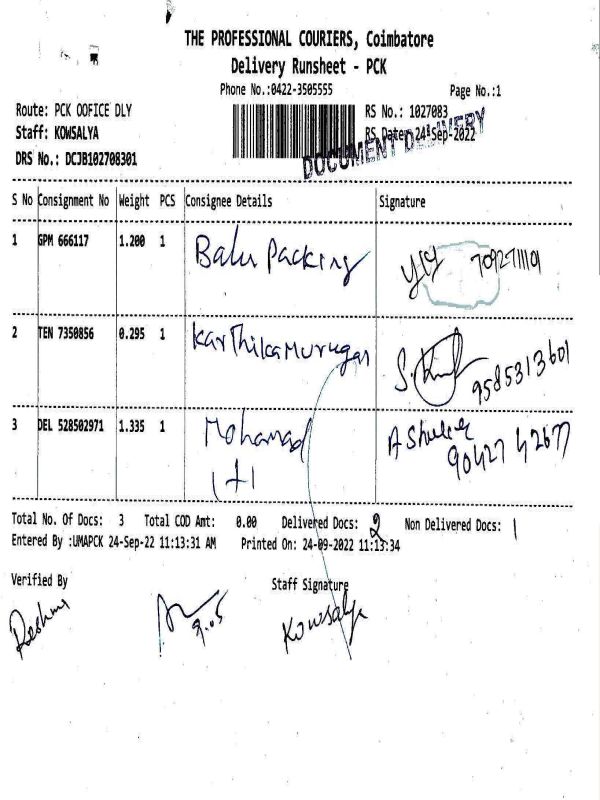 THE PROFESSIONAL COURIERS, Coimbatore
Delivery Runsheet - PCK
Phone No.:0422-3505555 Page No.:1
Route: PCK OOFICE DLY RS No.: 1027083
Staff: KOWSALYA RS Date: 24-Sep-2022
DOCUMENT DELIVERY
DRS No.: DCJB102708301
S No Consignment No Weight PCS Consignee Details Signature
1 GPM 666117 1.200 1 Balu Packing 7092711101
2 TEN 7350856 0.295 1 Karthika Murugan S. 9585313601
3 DEL 528502971 1.335 1 Mohamad
1+1
90427 42677
Total No. Of Docs: 3 Total COD Amt: 0.00 Delivered Docs: 2 Non Delivered Docs: 1
Entered By :UMAPCK 24-Sep-22 11:13:31 AM Printed On: 24-09-2022 11:13:34
Verified By Staff Signature
Reshma 9.05 Kowsalya